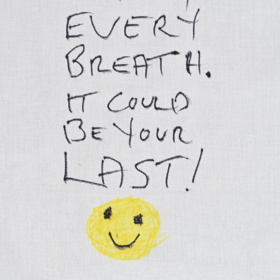 EVERY
BREATH.
IT COULD
BE YOUR
LAST!